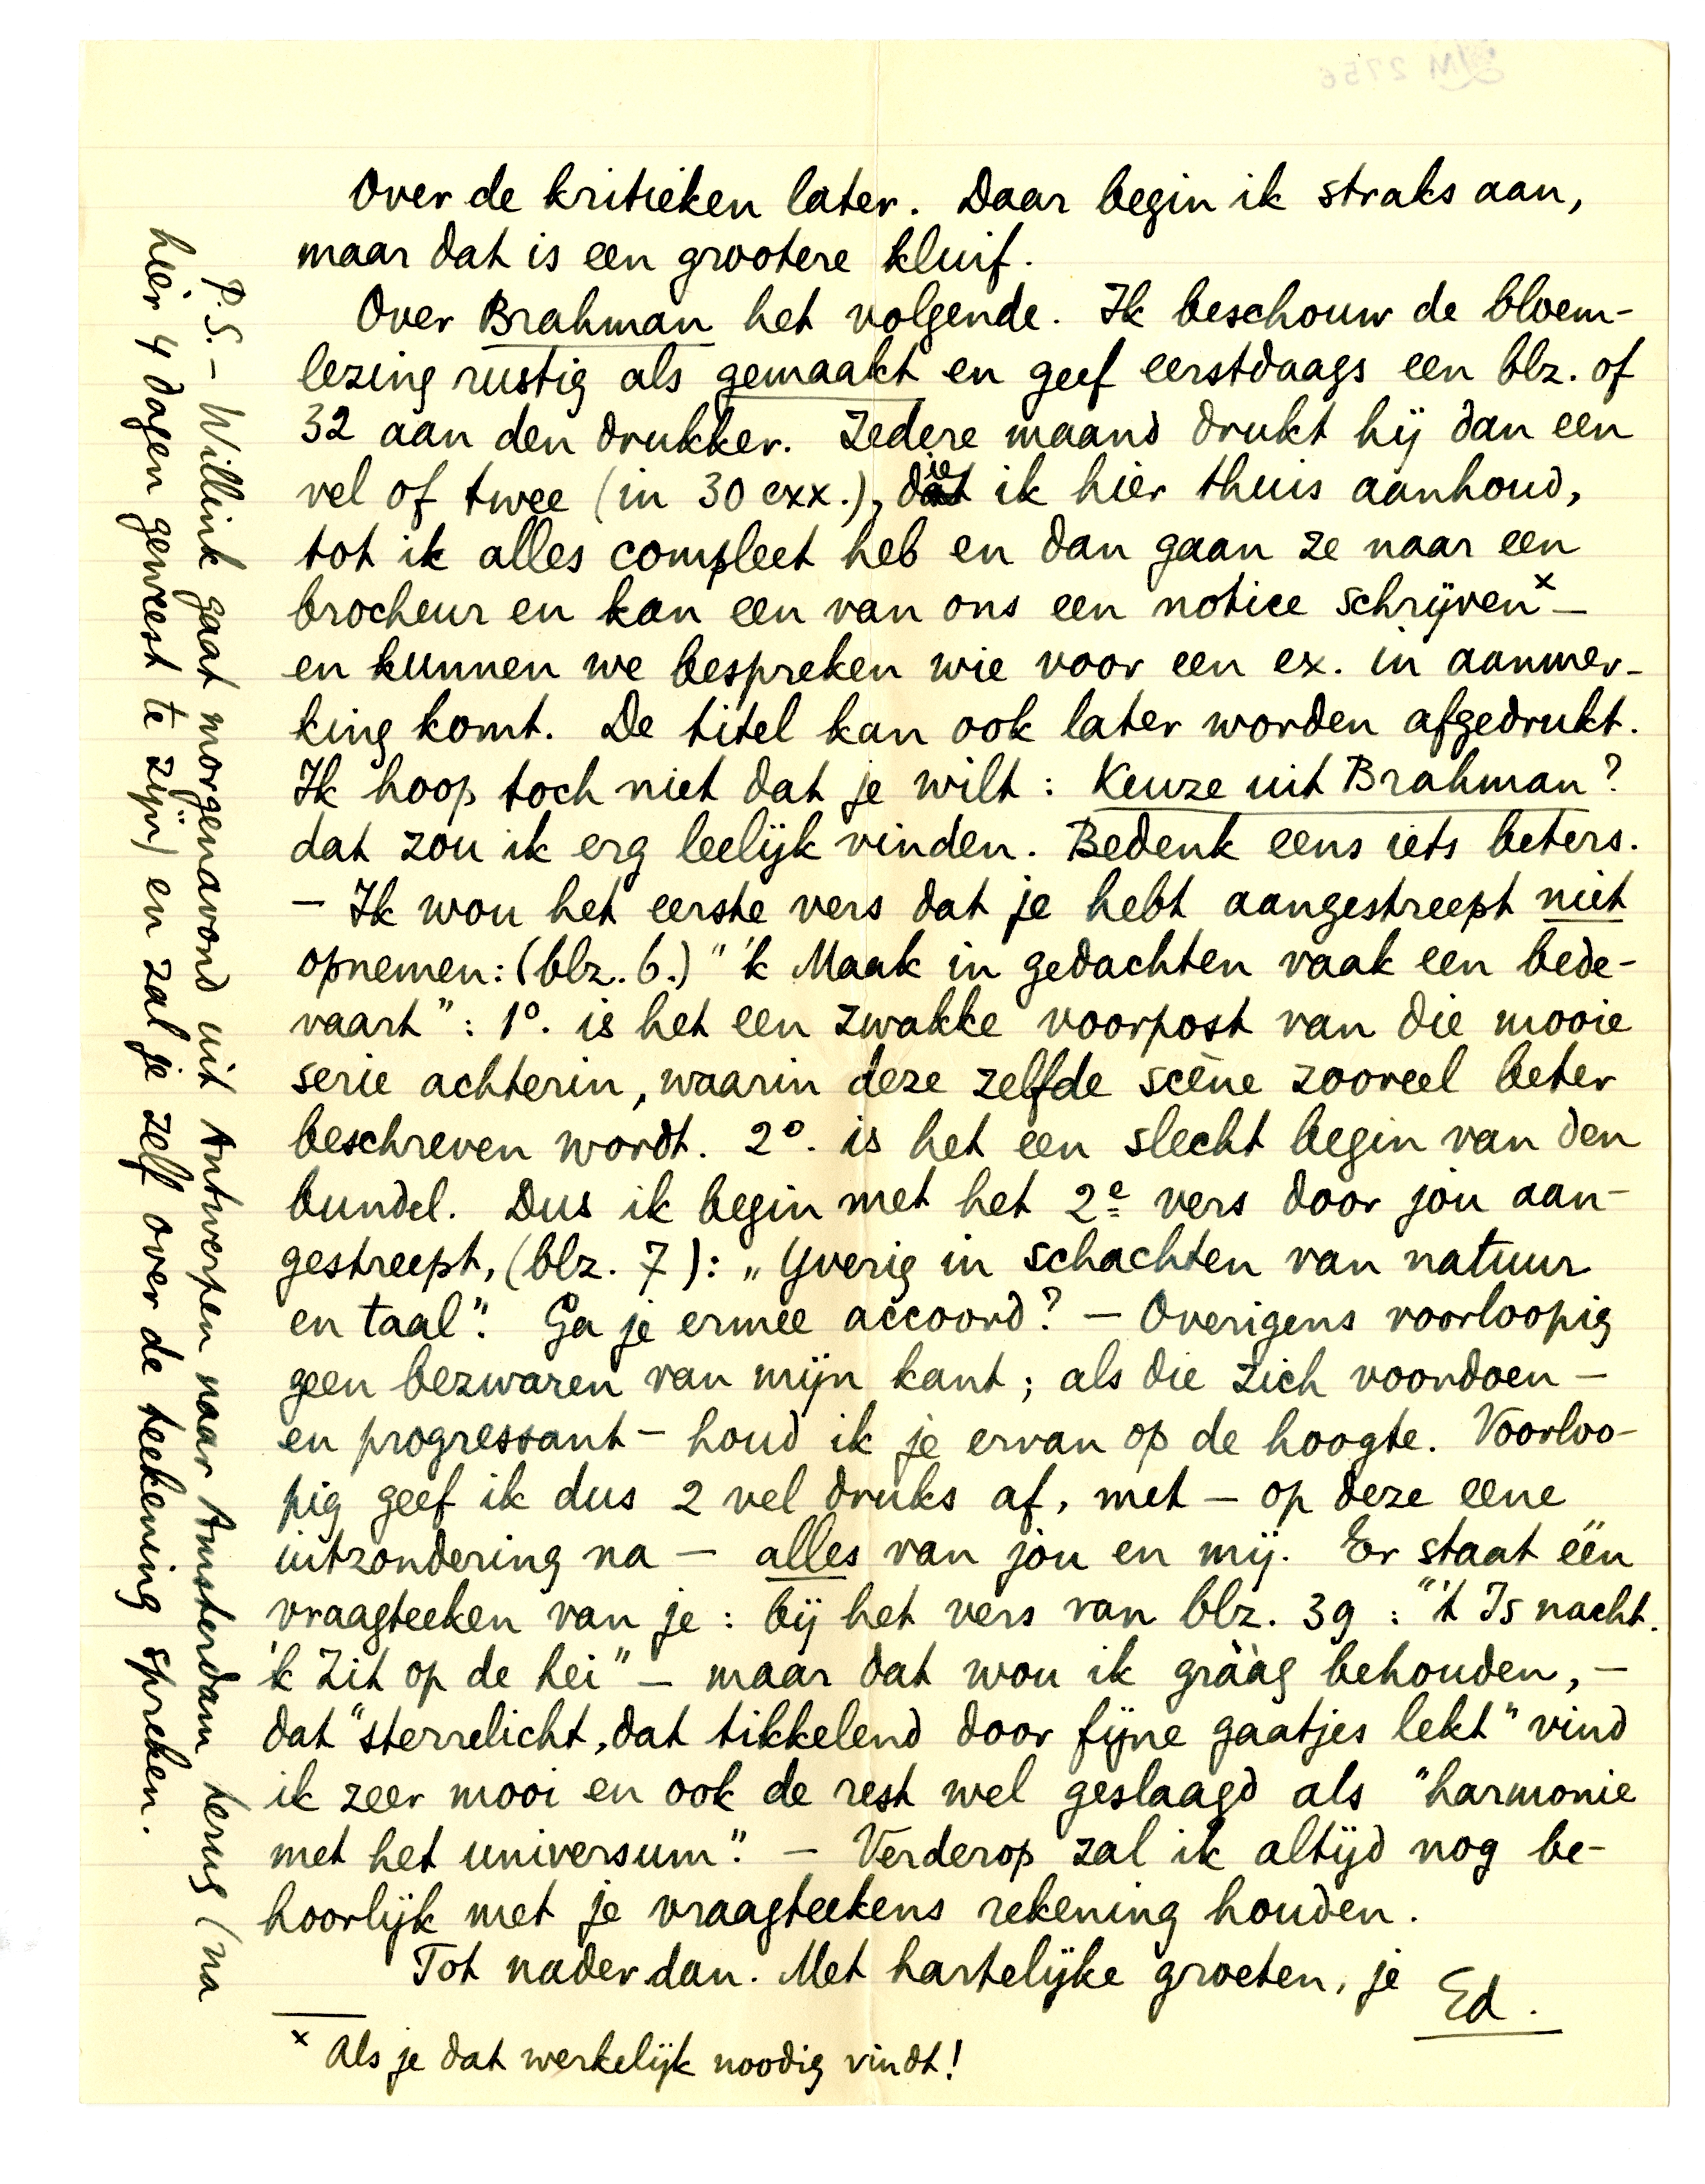 Over de kritieken later. Daar begin ik straks aan,
maar dat is een grootere kluif.
Over Brahman het volgende. Ik beschouw de bloem-
lezing rustig als gemaakt en geef eerstdaags een blz. of
32 aan den drukker. Iedere maand drukt hij dan een
vel of twee (in 30 exx.), die ik hier thuis aanhoud,
tot ik alles compleet heb en dan gaan ze naar een
brocheur en kan een van ons een notice schrijven x —
en kunnen we bespreken wie voor een ex. in aanmer-
king komt. De titel kan ook later worden afgedrukt.
Ik hoop toch niet dat je wilt: Keuze uit Brahman?
dat zou ik erg leelijk vinden. Bedenk eens iets beters.
— Ik wou het eerste vers dat je hebt aangestreept niet
opnemen: (blz. 6.) "'k Maak in gedachten vaak een bede-
vaart": 1o. is het een zwakke voorpost van die mooie
serie achterin, waarin deze zelfde scène zooveel beter
beschreven wordt. 2o. is het een slecht begin van den
bundel. Dus ik begin met het 2e vers door jou aan-
gestreept, (blz. 7): „Yverig in schachten van natuur
en taal". Ga je ermee accoord? — Overigens voorloopig
geen bezwaren van mijn kant; als die zich voordoen —
en progressant — houd ik je ervan op de hoogte. Voorloo-
pig geef ik dus 2 vel druks af, met — op deze eene
uitzondering na — alles van jou en mij. Er staat één
vraagteeken van je: bij het vers van blz. 39: "'t Is nacht.
'k Zit op de hei" — maar dat wou ik gráág behouden, —
dat "sterrelicht, dat tikkelend door fijne gaatjes lekt" vind
ik zeer mooi en ook de rest wel geslaagd als "harmonie
met het universum". — Verderop zal ik altijd nog be-
hoorlijk met je vraagteekens rekening houden.
Tot nader dan. Met hartelijke groeten, je
Ed.
x Als je dat werkelijk noodig vindt!
P.S. — Willink gaat morgenavond uit Antwerpen naar Amsterdam terug (na
hier 4 dagen geweest te zijn) en zal je zelf over de teekening spreken.